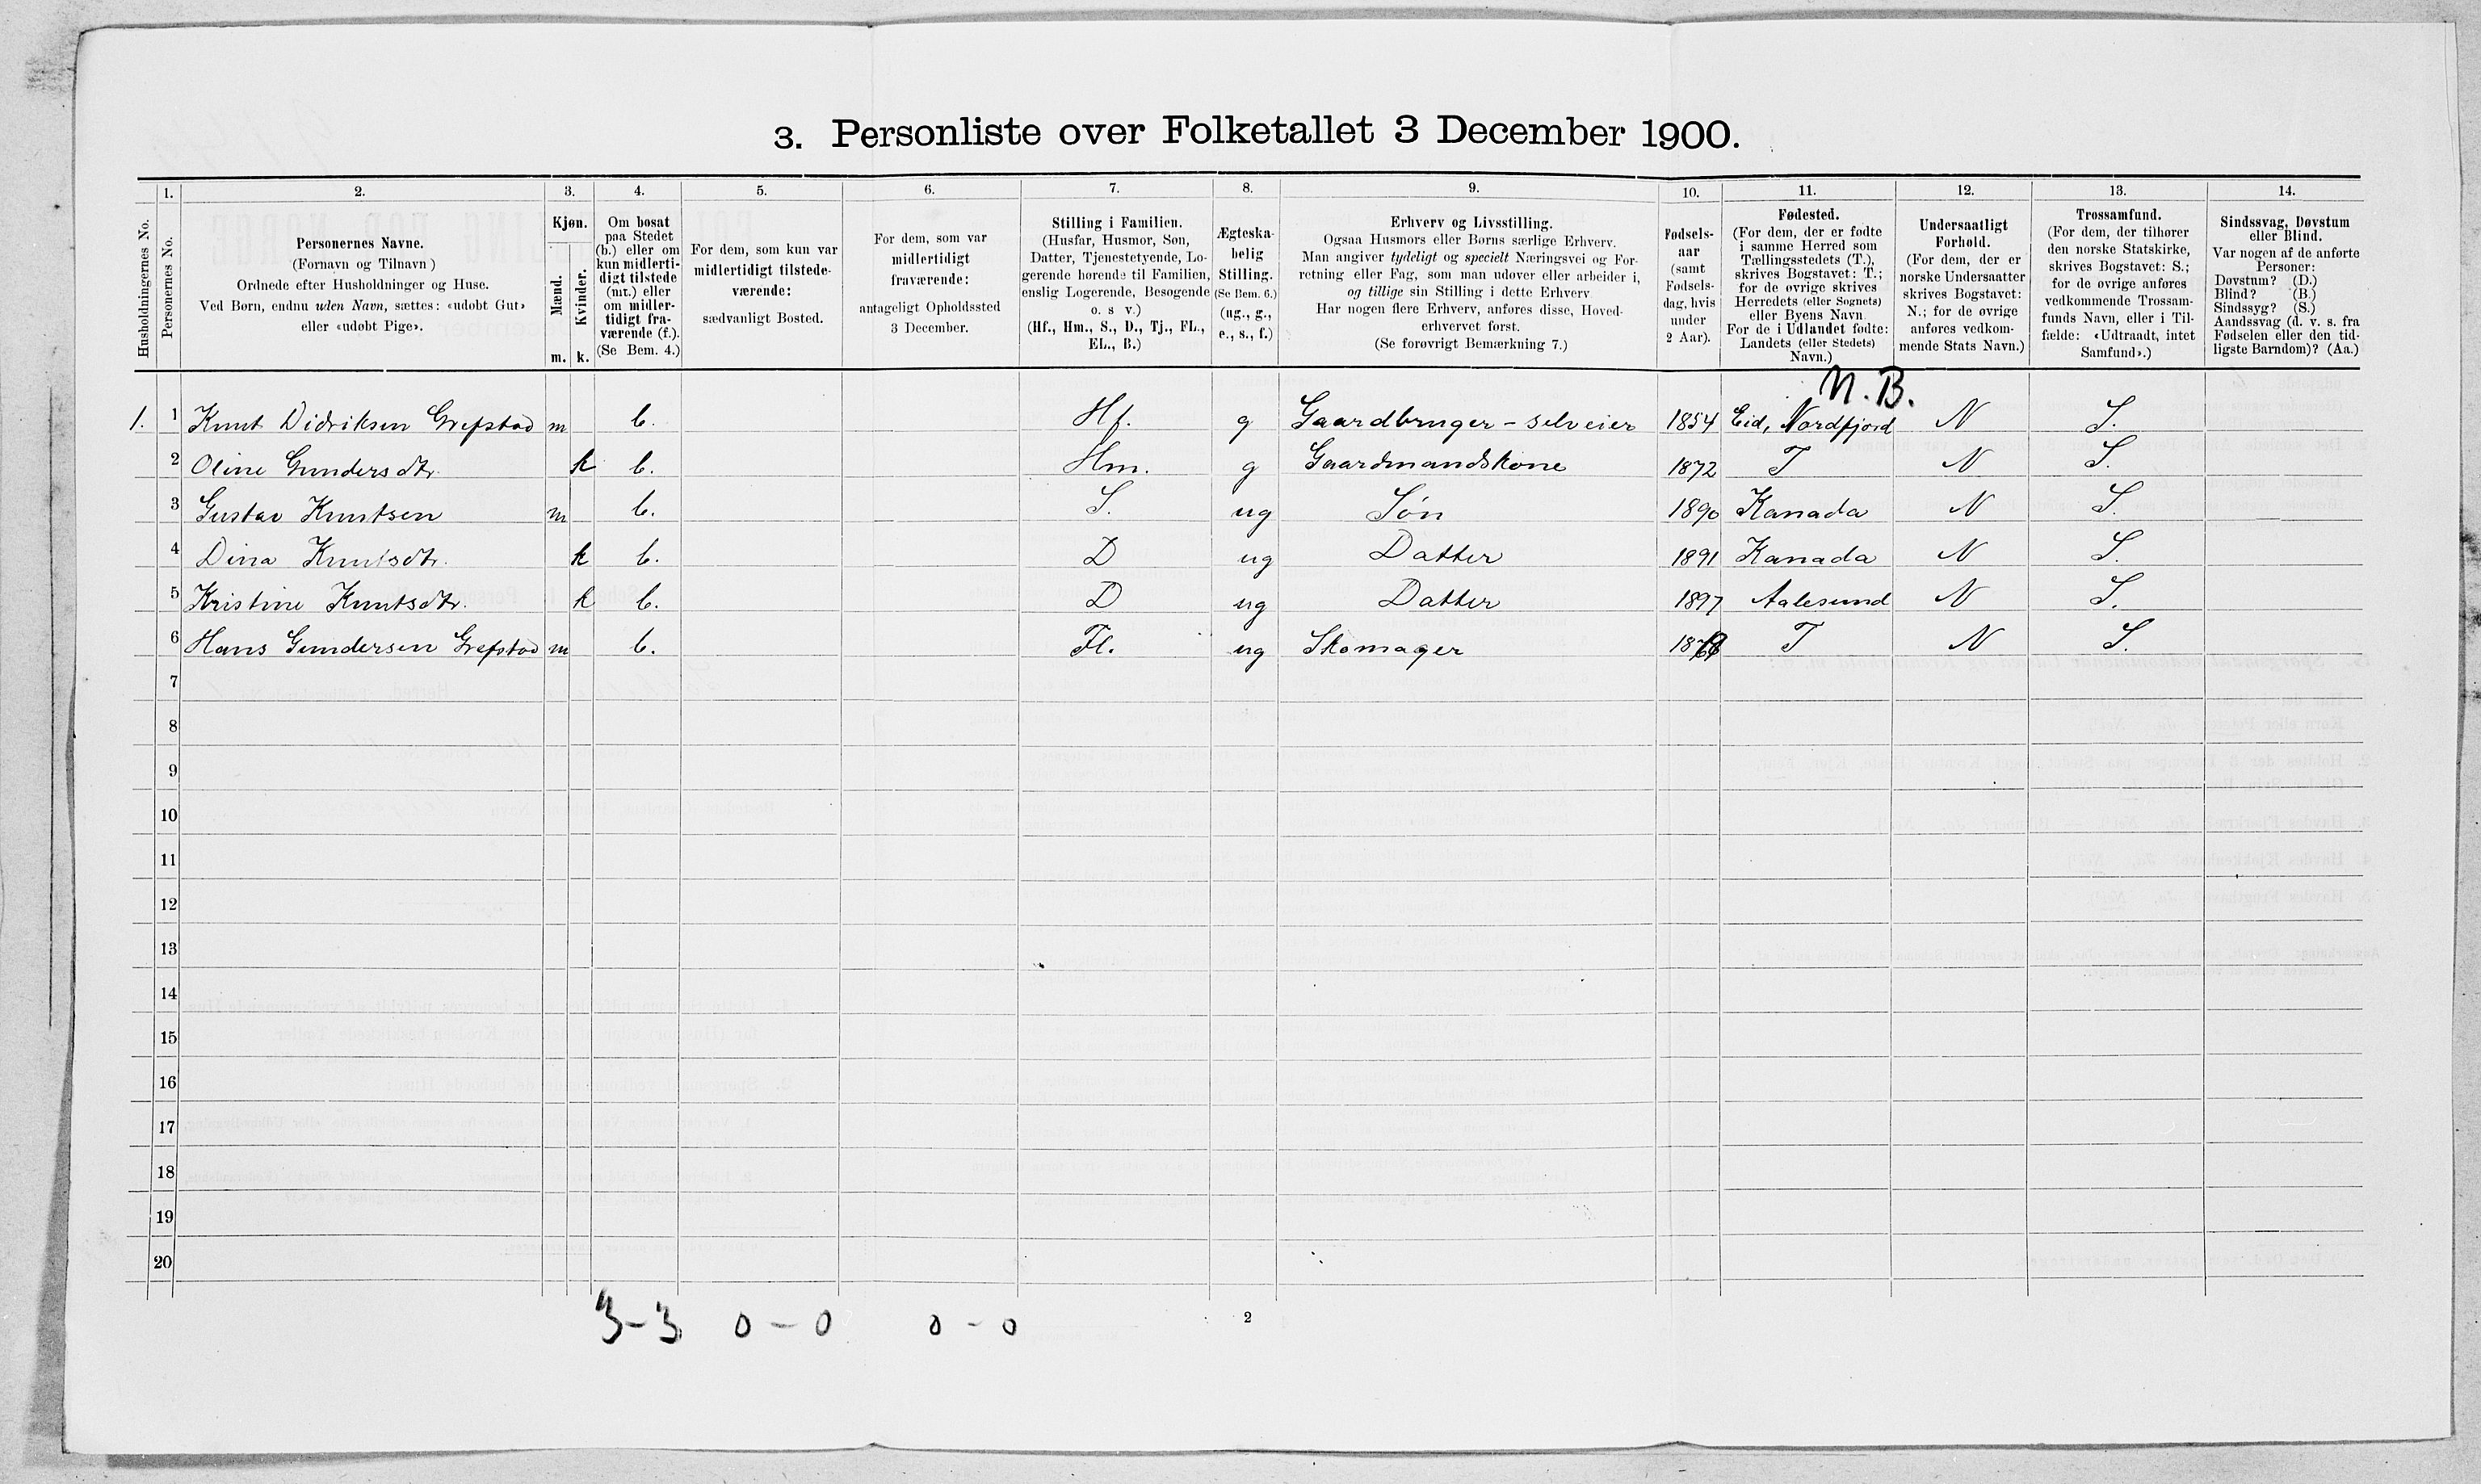 3. Personliste over Folketallet 3 December 1900.
Husholdningernes No.
1.
Personernes No.
2.
Personernes Navne.
(Fornavn og Tilnavn)
Ordnede efter Husholdninger og Huse.
Ved Børn, endnu uden Navn, sættes: «udøbt Gut»
eller «udøbt Pige».
3.
Kjøn.
Mænd.
Kvinder.
m. k.
4.
Om bosat
paa Stedet
(b.) eller om
kun midlerti-
digt tilstede
(mt.) eller
om midler-
tidigt fra-
værende (f.).
(Se Bem. 4.)
5.
For dem, som kun var
midlertidigt tilstede-
værende:
sædvanligt Bosted.
6.
For dem, som var
midlertidigt
fraværende:
antageligt Opholdssted
3 December.
7.
Stilling i Familien.
(Husfar, Husmor, Søn,
Datter, Tjenestetyende, Lo-
gerende hørende til Familien,
enslig Logerende, Besøgende
o. s v.)
(Hf., Hm., S., D., Tj., FL.,
EL., B.)
8.
Ægteska-
belig
Stilling.
(Se Bem. 6.)
(ug., g.,
e., s., f.)
9.
Erhverv og Livsstilling.
Ogsaa Husmors eller Børns særlige Erhverv.
Man angiver tydeligt og specielt Næringsvei og For-
retning eller Fag, som man udøver eller arbeider i,
og tillige sin Stilling i dette Erhverv
Har nogen flere Erhverv, anføres disse, Hoved-
erhvervet først.
(Se forøvrigt Bemærkning 7.)
10.
Fødsels-
aar
(samt
Fødsels-
dag, hvis
under
2 Aar).
11.
Fødested.
(For dem, der er fødte
i samme Herred som
Tællingsstedets (T.),
skrives Bogstavet: T.;
for de øvrige skrives
Herredets (eller Sognets)
eller Byens Navn
For de i Udlandet fødte:
Landets (eller Stedets)
Navn.)
12.
Undersaatligt
Forhold.
(For dem, der er
norske Undersaatter
skrives Bogstavet:
N.; for de øvrige
anføres vedkom-
mende Stats Navn.)
13.
Trossamfund.
(For dem, der tilhører
den norske Statskirke,
skrives Bogstavet: S.;
for de øvrige anføres
vedkommende Trossam-
funds Navn, eller i Til-
fælde: «Udtraadt, intet
Samfund».)
14.
Sindssvag, Døvstum
eller Blind.
Var nogen af de anførte
Personer:
Døvstum? (D.)
Blind? (B.)
Sindssyg? (S.)
Aandssvag (d. v. s. fra
Fødselen eller den tid-
ligste Barndom)? (Aa.)
N.B.
1. 1 Knut Didriksen Grefstad m b. Hf. g Gaardbruger - selveier 1854 Eid, Nordfjord N S.
2 Oline Gundersdtr. k b. Hm. g Gaardmandskone 1872 T N S.
3 Gustav Knutsen m b. S. ug Søn 1890 Kanada N S.
4 Dina Knutsdtr. k b. D ug Datter 1891 Kanada N S.
5 Kristine Knutsdtr. k b. D ug Datter 1897 Aalesund N S.
6 Hans Gundersen Grefstad m b. Fl. ug Skomager T N S.
7
8
9
10
11
12
13
14
15
16
17
18
19
20
3-3 0-0 0-0
2